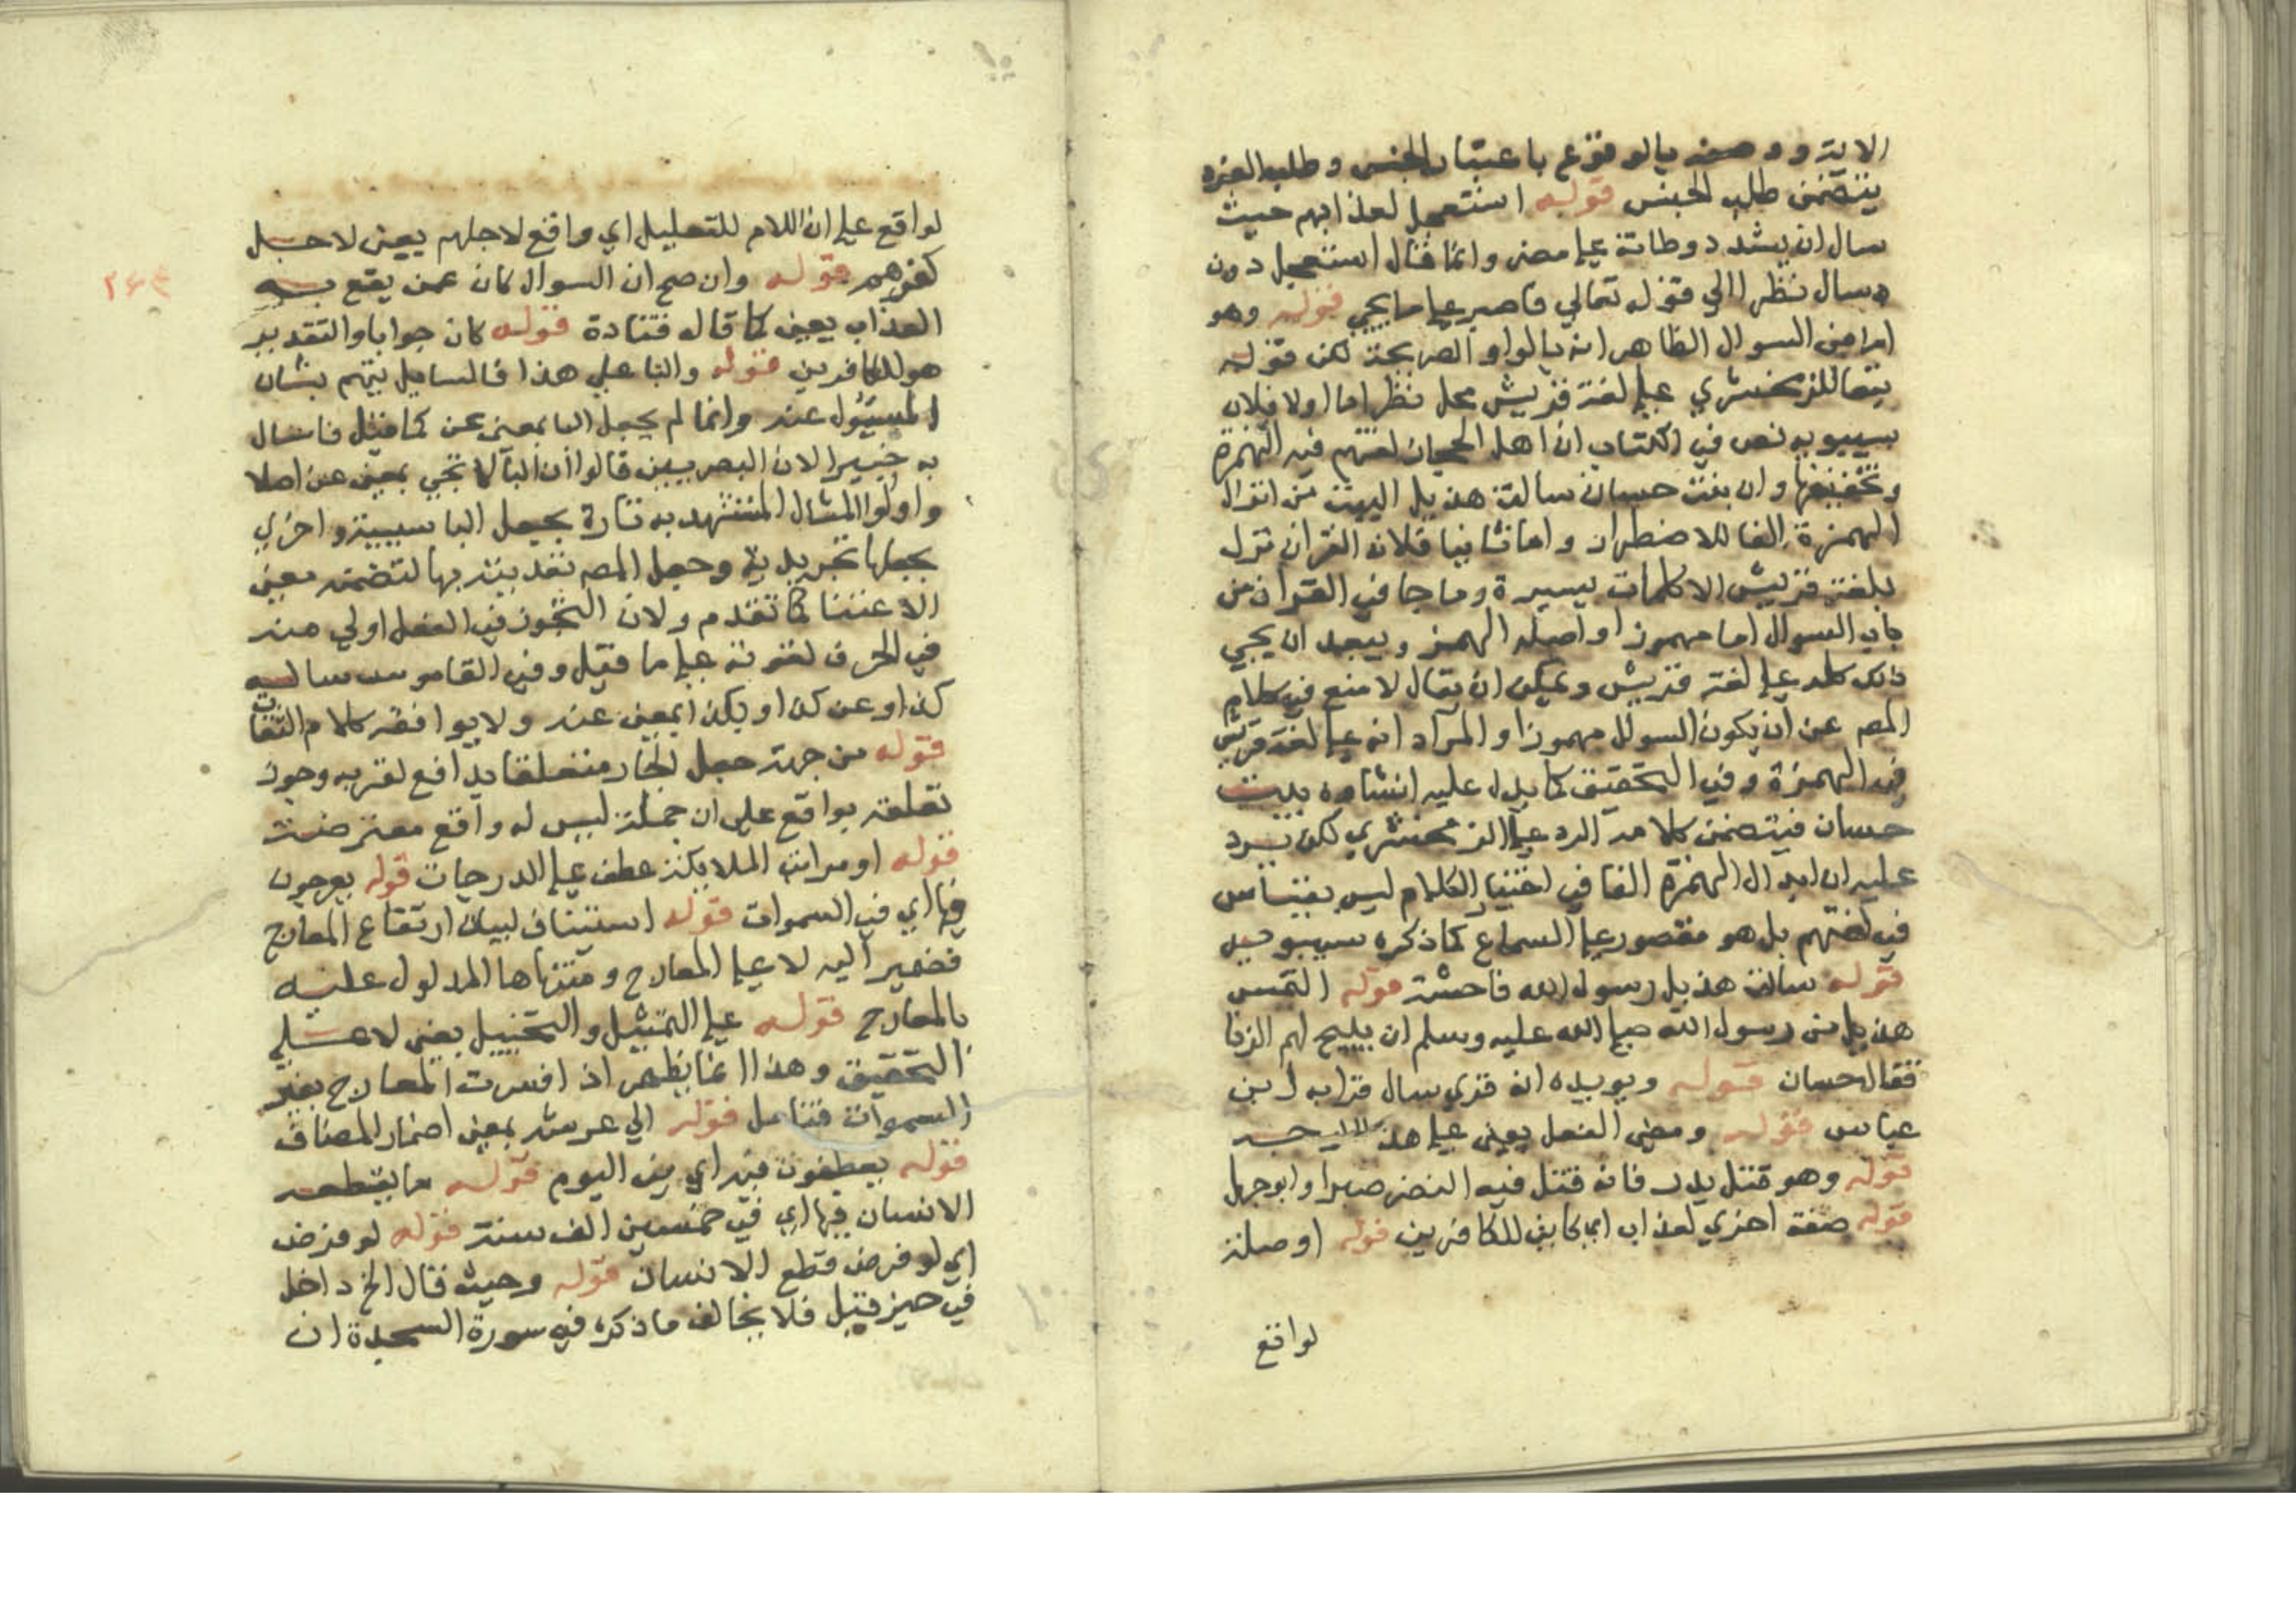 الاية ووصفه بالوقوع باعتبار الجنس وطلب الفرد
يتضمن طلب الجنس قوله استعجل لعذابهم حيث
سال ان يشدد وطاته علي مضر وانما قال استعجل دون
سال نظرا الي قوله تعالي فاصبر علي ما يجي قوله وهو
اما من السوال الظاهر انه بالواو الصريحة لكن قوله
تبعا للزمخشري علي لغة قريش محل نظر اما اولا فلان
سيبويه نص في الكتاب ان اهل الحجاز لغتهم فيه الهمزة
وتخفيفها وان بيت حسان سالت هذيل البيت من ابدال
الهمزة الفا للاضطرار واما ثانيا فلان القران نزل
بلغة قريش الا كلمات يسيرة وما جا في القران من
باب السوال اما مهموز او اصله الهمز ويبعد ان يجي
ذلك كله علي لغة قريش ويمكن ان يقال لا منع في كلام
المصم عن ان يكون السوال مهموزا والمراد انه علي لغة قريش
في الهمزة وفي التحقيق كما يدل عليه انشاده بيت
حسان فيتضمن كلامه الرد علي الزمخشري لكن يرد
عليه ان ابدال الهمزة الفا في اختيار الكلام ليس بقياس
في لغتهم بل هو مقصور علي السماع كما ذكره سيبويه
قوله سالت هذيل رسول الله فاحشة قوله التمس
هذيل من رسول الله صلي الله عليه وسلم ان يبيح لهم الزنا
فقال حسان قوله ويويده انه قري سال قرا به ابن
عباس قوله ومضي الفعل يعني علي هذا
قوله وهو قتل بدر فانه قتل فيه النضر صبرا وابو جهل
قوله صفة اخري لعذاب اي كاين للكافرين قوله او صلة
لواقع
لواقع علي ان اللام للتعليل اي واقع لاجلهم يعني لاجل
كفرهم قوله وان صح ان السوال كان عمن يقع به
العذاب يعني كما قاله قتادة قوله كان جوابا والتقدير
هو للكافرين قوله والبا علي هذا فالسايل يهتم بشان
المسيول عنه وانما لم يجعل البا بمعني عن كما قيل فاسال
به خبيرا لان البصريين قالوا ان البا لا تجي بمعني عن اصلا
واولوا المثال المستشهد به تارة بجعل البا سببية واخري
بجعلها تجريدية وجعل المصم تعديته بها لتضمنه معني
الاعتنا كما تقدم ولان التجوز في الفعل اولي منه
في الحرف لقوته علي ما قيل وفي القاموس ساله
كذا وعن كذا وبكذا بمعني عنه ولا يوافقه كلام الثقات
قوله من جهته جعل الجار متعلقا بدافع لقربه وجوز
تعلقه بواقع علي ان جملة ليس له دافع معترضة
قوله او مراتب الملايكة عطف علي الدرجات قوله يعرجون
فيها اي في السموات قوله استيناف لبيان ارتفاع المعارج
فضمير اليه لا علي المعارج ومنتهاها المدلول عليه
بالمعارج قوله علي التمثيل والتخييل يعني لا علي
التحقيق وهذا انما يظهر اذا فسرت المعارج بغير
السموات فتامل قوله الي عرشه بمعني اضمار المضاف
قوله يقطعون فيه اي في اليوم قوله ما يقطعه
الانسان فيها اي في خمسين الف سنة قوله لو فرض
اي لو فرض قطع الانسان قوله وحيث قال الخ داخل
في حيز قيل فلا يخالف ما ذكره في سورة السجدة ان